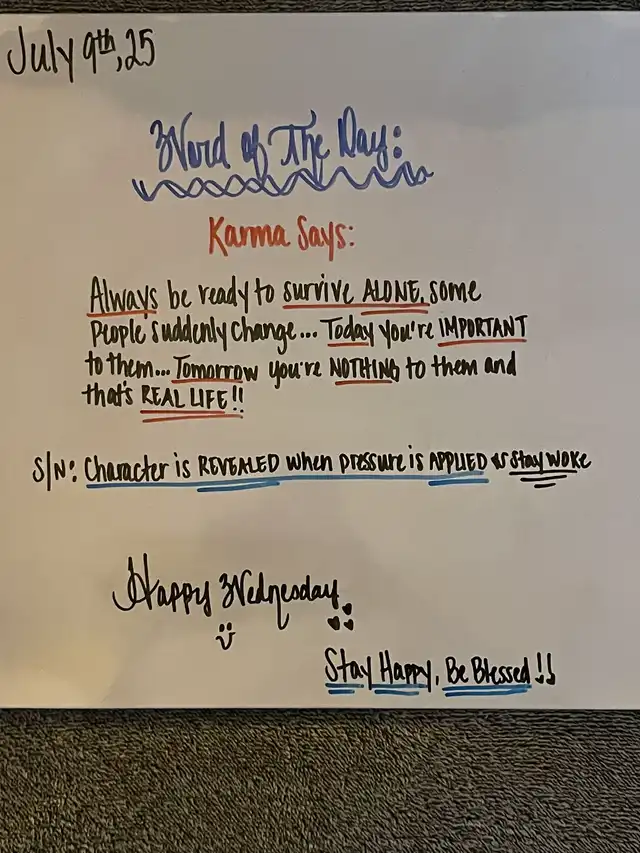 July 9th, 25
Word of The Day:
Karma Says:
Always be ready to survive ALONE, some
People suddenly change... Today you're IMPORTANT
to them... Tomorrow you're NOTHING to them and
that's REAL LIFE!!
S/N: Character is REVEALED when pressure is APPLIED & Stay WOKE
Happy Wednesday
Stay Happy, Be Blessed!!